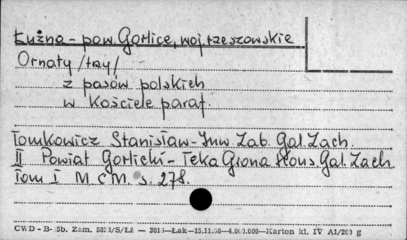 Łużna - pow. Gorlice, woj rzeszowskie
Ornaty /trzy/
z pasów polskich
w kościele paraf.
Tomkowicz Stanisław - Inw Zab. Gal. Zach.
II Powiat Gorlicki - Teka Grona Kons Gal. Zach
Tom I M C M s. 278.
CWD - B- 5b. Zam. Łak—15.11.56—4.000.000—Karton kl. IV A1/200 g